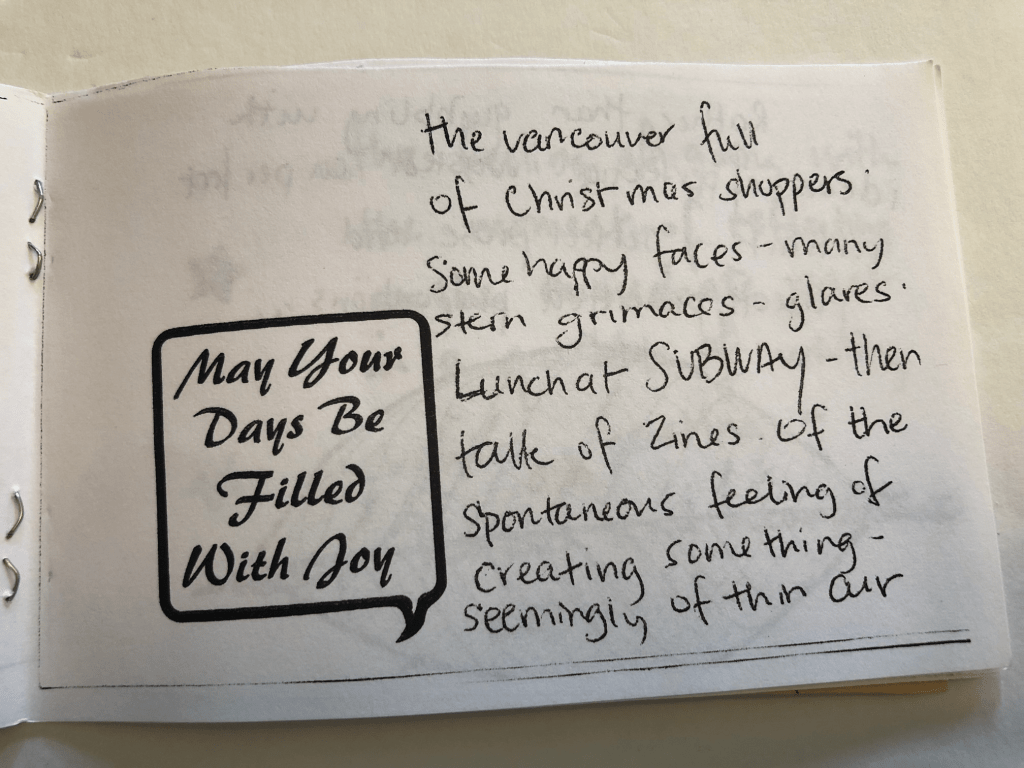 May Your
Days Be
Filled
With Joy
the vancouver full
of Christmas shoppers.
Some happy faces - many
stern grimaces - glares.
Lunch at SUBWAY - then
talk of Zines. Of the
spontaneous feeling of
creating something -
seemingly of thin air